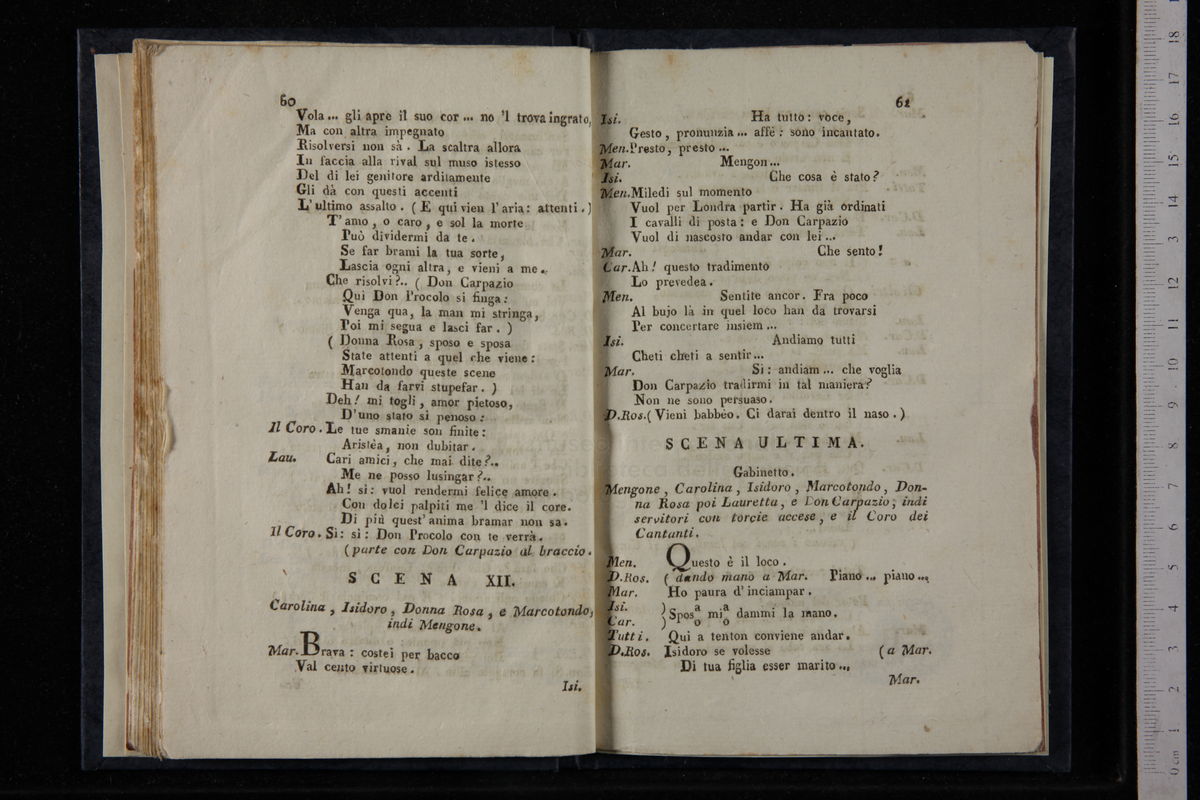 60
Vola... gli apre il suo cor... no 'l trova ingrato,
Ma con altra impegnato
Risolversi non sà. La scaltra allora
In faccia alla rival sul muso istesso
Del di lei genitore arditamente
Gli dà con questi accenti
L'ultimo assalto. (E qui vien l'aria: attenti.)
T'amo, o caro, e sol la morte
Può dividermi da te.
Se far brami la tua sorte,
Lascia ogni altra, e vieni a me.
Che risolvi?.. (Don Carpazio
Qui Don Procolo si finga:
Venga qua, la man mi stringa,
Poi mi segua e lasci far.)
(Donna Rosa, sposo e sposa
State attenti a quel che viene:
Marcotondo queste scene
Han da farvi stupefar.)
Deh! mi togli, amor pietoso,
D'uno stato si penoso:
Il Coro. Le tue smanie son finite:
Aristèa, non dubitar.
Lau. Cari amici, che mai dite?..
Me ne posso lusingar?..
Ah! si: vuol rendermi felice amore.
Con dolci palpiti me 'l dice il core.
Di più quest'anima bramar non sa.
Il Coro. Si: si: Don Procolo con te verrà.
(parte con Don Carpazio al braccio.
SCENA XII.
Carolina, Isidoro, Donna Rosa, e Marcotondo,
indi Mengone.
Mar. Brava: costei per bacco
Val cento virtuose.
Isi.
61
Isi. Ha tutto: voce,
Gesto, pronunzia... affè: sono incantato.
Men. Presto, presto...
Mar. Mengon...
Isi. Che cosa è stato?
Men. Miledi sul momento
Vuol per Londra partir. Ha già ordinati
I cavalli di posta: e Don Carpazio
Vuol di nascosto andar con lei...
Mar. Che sento!
Car. Ah! questo tradimento
Lo prevedea.
Men. Sentite ancor. Fra poco
Al bujo là in quel loco han da trovarsi
Per concertare insiem...
Isi. Andiamo tutti
Cheti cheti a sentir...
Mar. Si: andiam... che voglia
Don Carpazio tradirmi in tal maniera?
Non ne sono persuaso.
D.Ros. (Vieni babbèo. Ci darai dentro il naso.)
SCENA ULTIMA.
Gabinetto.
Mengone, Carolina, Isidoro, Marcotondo, Don-
na Rosa poi Lauretta, e Don Carpazio; indi
servitori con torcie accese, e il Coro dei
Cantanti.
Men. Questo è il loco.
D.Ros. (dando mano a Mar. Piano... piano...
Mar. Ho paura d'inciampar.
Isi. )
Car. ) Spos a/o mi a/o dammi la mano.
Tutti. Qui a tenton conviene andar.
D.Ros. Isidoro se volesse (a Mar.
Di tua figlia esser marito...
Mar.